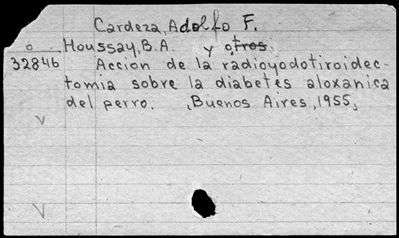 Cardeza, Adolfo F.
o Houssay, B.A. y otros.
32846 Accion de la radioyodotiroidec-
tomia sobre la diabetes aloxanica
del perro. , Buenos Aires, 1955,
v
V